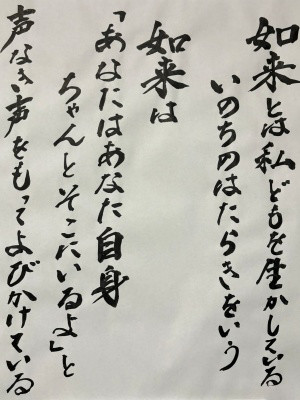 如来とは私どもを生かしている
いのちのはたらきをいう
如来は
「あなたはあなた自身
ちゃんとそこにいるよ」と
声なき声をもってよびかけている